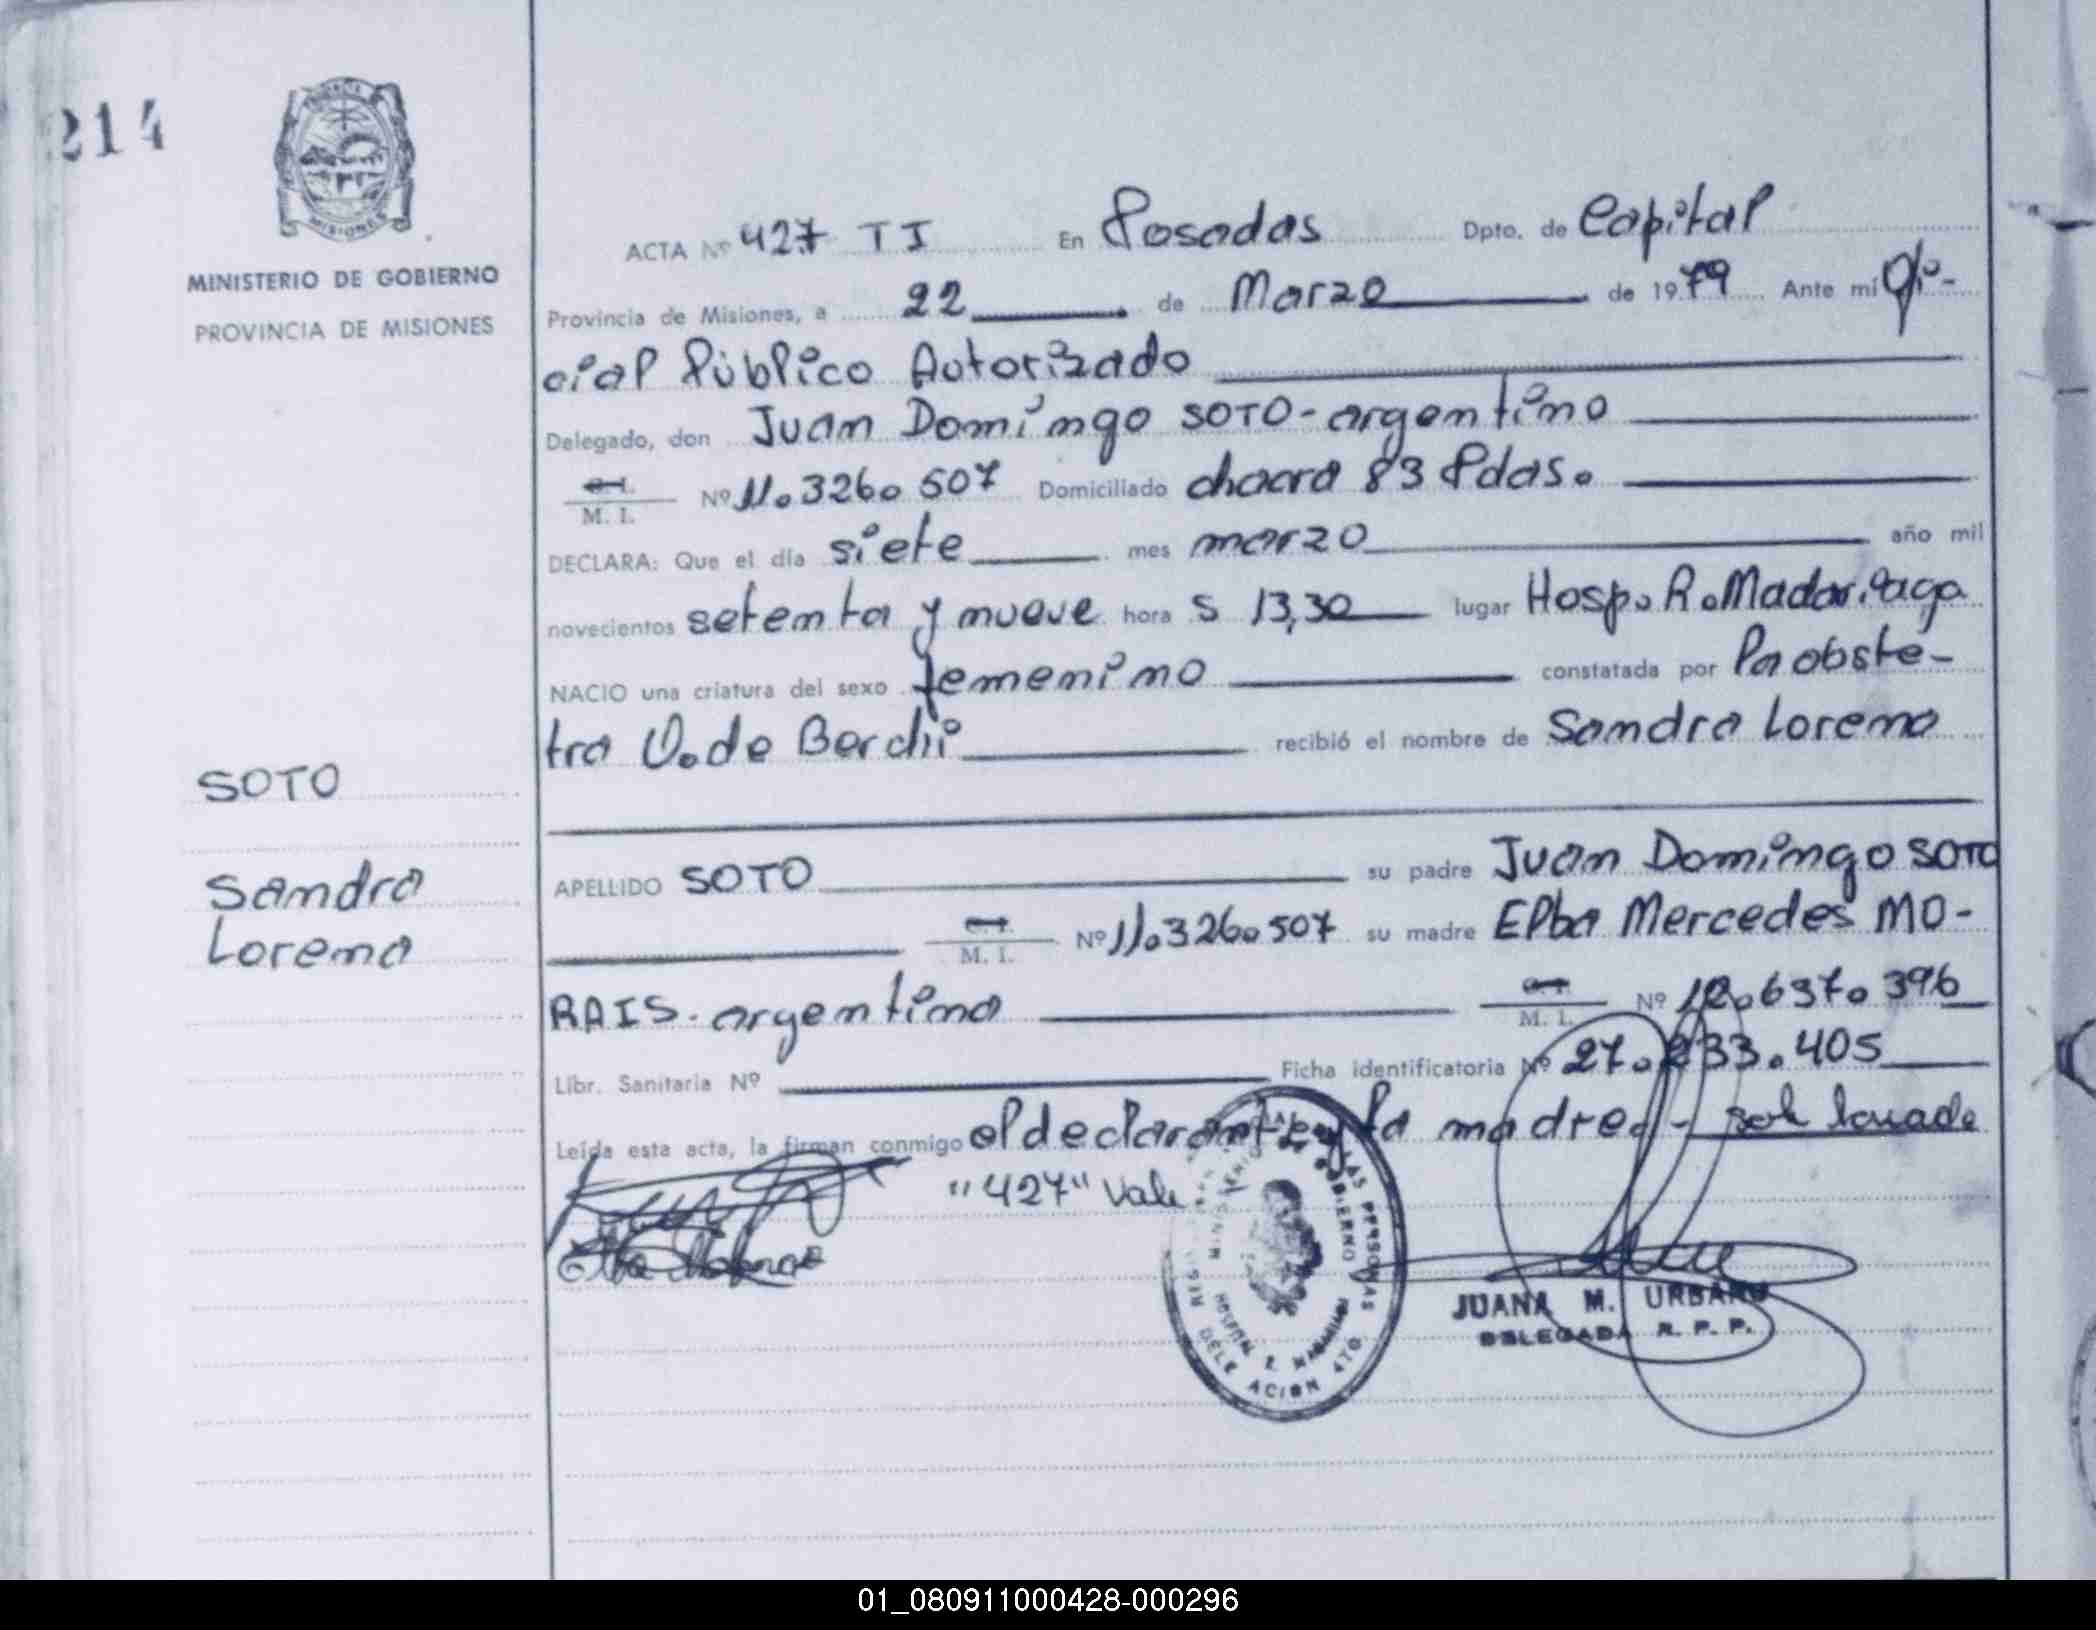 214
MINISTERIO DE GOBIERNO
PROVINCIA DE MISIONES
ACTA Nº 427 TI En Posadas Dpto. de Capital
Provincia de Misiones, a 22 de Marzo de 1979 Ante mi Ofi-
cial Público Autorizado
Delegado, don Juan Domingo SOTO - argentino
M. I. Nº 11.326.507 Domiciliado chacra 83 Pdas.
DECLARA: Que el día siete mes marzo año mil
novecientos setenta y nueve hora s 13,30 lugar Hosp. R. Madariaga
NACIO una criatura del sexo femenino constatada por la obste-
tra O. de Berchi recibió el nombre de Sandra Lorena
SOTO
Sandra
Lorena
APELLIDO SOTO su padre Juan Domingo SOTO
M. I. Nº 11.326.507 su madre Elba Mercedes MO-
RAIS - argentina M. I. Nº 12.637.396
Libr. Sanitaria Nº Ficha identificatoria Nº 27.233.405
Leída esta acta, la firman conmigo el declarante y la madre.-
"427" Vale
JUANA M. URBANO
DELEGADA R. P. P.
LAS PERSONAS
DELEGACION 4TO
MINISTERIO DE GOBIERNO
HOSPITAL R. MADARIAGA
01_080911000428-000296